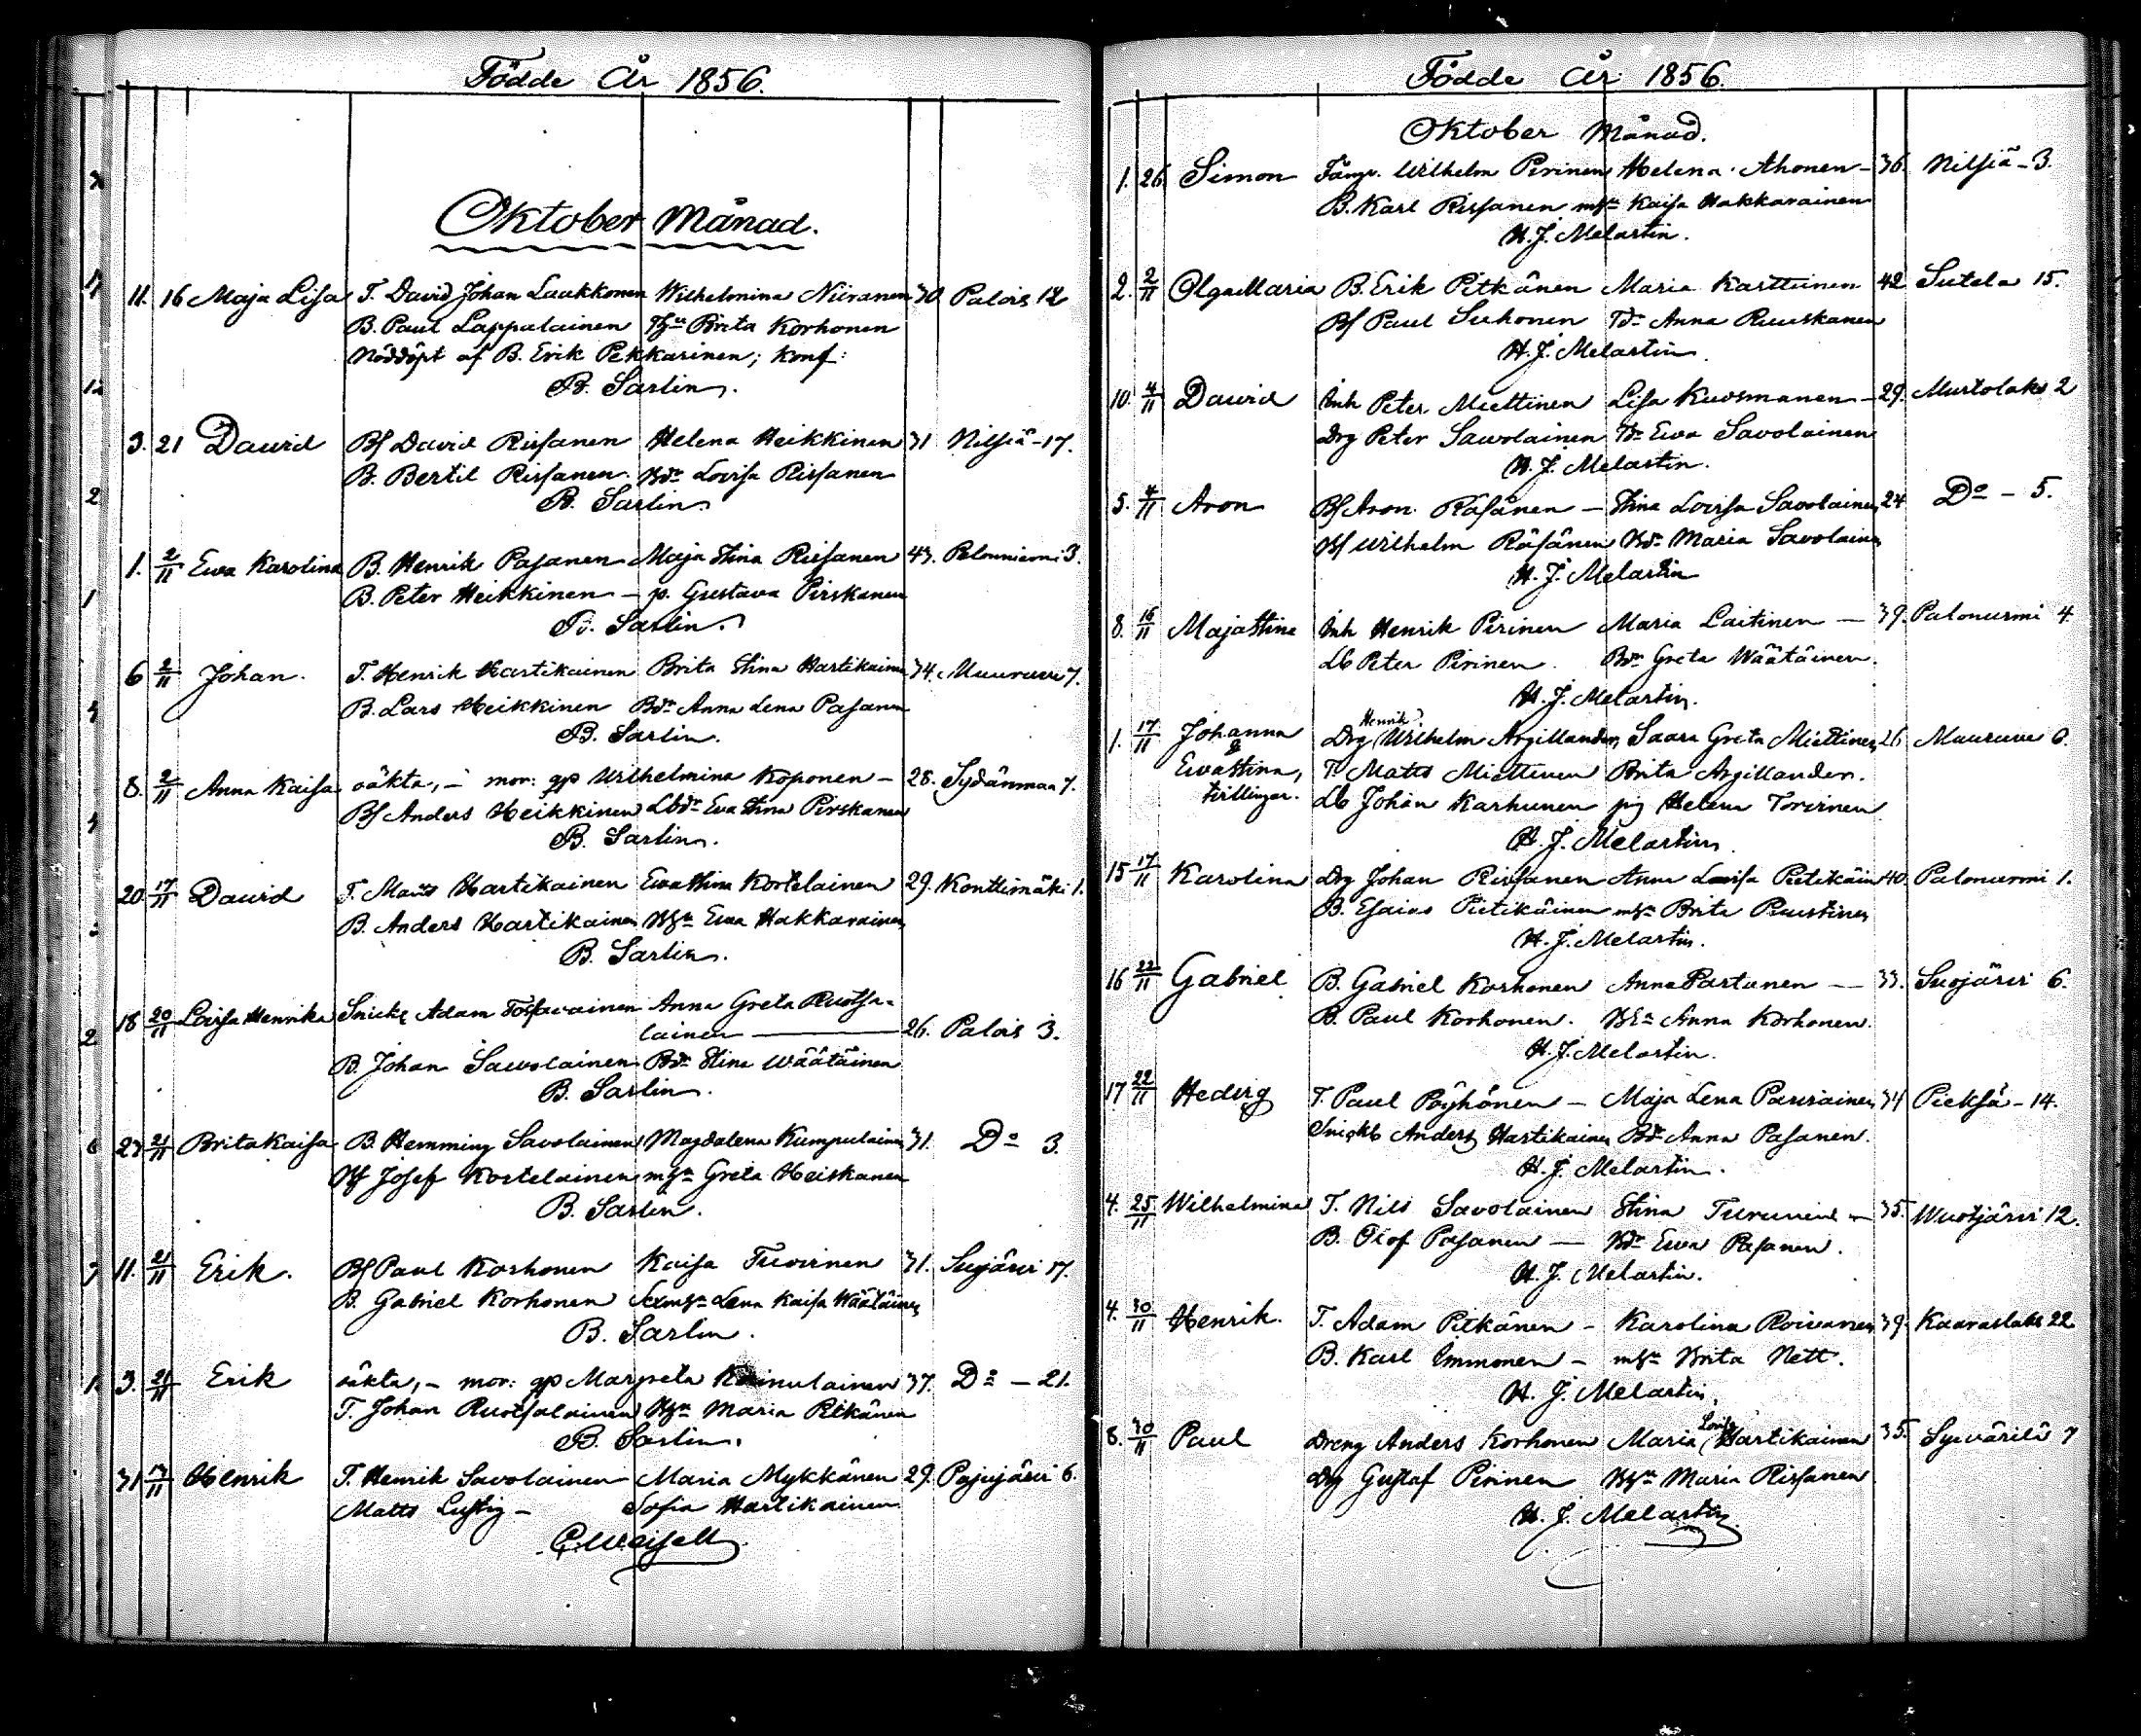 Födde År 1856.
Oktober Månad.
11. 16 Maja Lisa T. David Johan Laukkonen Wilhelmina Niiranen 30 Palois 12
B. Paul Lappalainen Brita Korhonen
Nöddöpt af B. Erik Pekkarinen; konf:
B. Sarlin.
3. 21 Dawid Bf David Rissanen Helena Heikkinen 31 Nilsiä - 17.
B. Bertil Rissanen. Bdr Lovisa Rissanen
B. Sarlin.
1. 2/11 Ewa Karolina B. Henrik Pasanen Maja Stina Rissanen 43. 3.
B. Peter Heikkinen - p. Gustava Pirskanen
B. Sarlin.
6 2/11 Johan. T. Henrik Hartikainen Brita Stina Hartikainen 34. Muuruvi 7.
B. Lars Heikkinen Bdr Anna Lena Pasanen
B. Sarlin.
8. 2/11 Anna Kaisa oäkta, - mor: gp Wilhelmina Koponen - 28. Sydänmaa 7.
Bf Anders Heikkinen Lbdr Eva Stina Pirskanen
B. Sarlin.
20. 17/11 Dawid T. Matts Hartikainen Ewa Stina Kortelainen 29. Konttimäki 1.
B. Anders Hartikainen Ewa Hakkarainen
B. Sarlin.
18 20/11 Lovisa Henrika Snick Adam Tossavainen Anna Greta Ruotsa-
lainen 26. Palois 3.
B. Johan Sawolainen Bdr Stina Wäätäinen
B. Sarlin.
23 21/11 Brita Kaisa B. Hemming Savolainen Magdalena Kumpulainen 31. Do 3.
Bf Josef Kortelainen Greta Heiskanen
B. Sarlin.
11. 21/11 Erik. Bf Paul Korhonen Kaisa Tuovinen 31. Sujärvi 17.
B. Gabriel Korhonen Lena Kaisa Wäätäinen
B. Sarlin.
3. 21/11 Erik oäkta, - mor: gp Margreta Kainulainen 37. Do - 21.
T. Johan Ruotsalainen Maria Pitkänen
B. Sarlin.
31 Henrik T. Henrik Savolainen Maria Mykkänen 29. Pajujärvi 6.
Matts Lustig - Sofia Hartikainen
Födde År 1856.
Oktober Månad.
1. 26 Simon Wilhelm Pirinen Helena Ahonen - 36. Nilsiä - 3.
B. Karl Rissanen Kaisa Hakkarainen
H. J. Melartin.
2. 2/11 Olga Maria B. Erik Pitkänen Maria Karttunen 42 Sutela 15.
Bf Paul Suhonen Tdr Anna Ruuskanen
H. J. Melartin.
10. 4/11 Dawid Inh Peter Miettinen Lisa Kuosmanen - 29. Murtolaks 2
Drg Peter Sawolainen Tdr Ewa Savolainen
H. J. Melartin.
5. 4/11 Aron Bf Aron Räsänen - Stina Lovisa Savolainen 24 Do - 5.
Bf Wilhelm Räsänen Bdr Maria Savolainen
H. J. Melartin
8. 16/11 Maja Stina Inh Henrik Pirinen Maria Laitinen - 39. Palonurmi 4.
Lb Peter Pirinen. Bdr Greta Wäätäinen.
H. J. Melartin.
1. 17/11 Johanna Drg Henrik Wilhelm Argillander, Saara Greta Miettinen 26 Muuruvi 6.
& Ewa Stina, T. Matts Miettinen Brita Argillander.
tvillingar. Lb Johan Karhunen pig Helena Tovinen
H. J. Melartin.
15 17/11 Karolina Drg Johan Rissanen Anna Lovisa Pietikäin 40. Palonurmi 1.
B. Esaias Pietikäinen Brita Puustinen
H. J. Melartin.
16 22/11 Gabriel B. Gabriel Korhonen Anna Partanen - 33. Suojärvi 6.
B. Paul Korhonen. Anna Korhonen.
H. J. Melartin.
17 22/11 Hedvig T. Paul Pöyhönen - Maja Lena Parviainen 34 Pieksä - 14.
Anders Hartikainen Bdr Anna Pasanen.
H. J. Melartin.
4. 25/11 Wilhelmina T. Nils Savolainen Stina Turunen - 35. Wuotjärvi 12.
B. Olof Pasanen - Bdr Ewa Pasanen.
H. J. Melartin.
4. 30/11 Henrik. T. Adam Pitkänen - Karolina Roivanen 39. Kaavaslaks 22
B. Karl Immonen - Brita Nett.
H. J. Melartin.
8. 30/11 Paul Dreng Anders Korhonen Maria Lovisa Hartikainen 35. Syvärilä 7
Drg Gustaf Pirinen Maria Rissanen
H. J. Melartin.